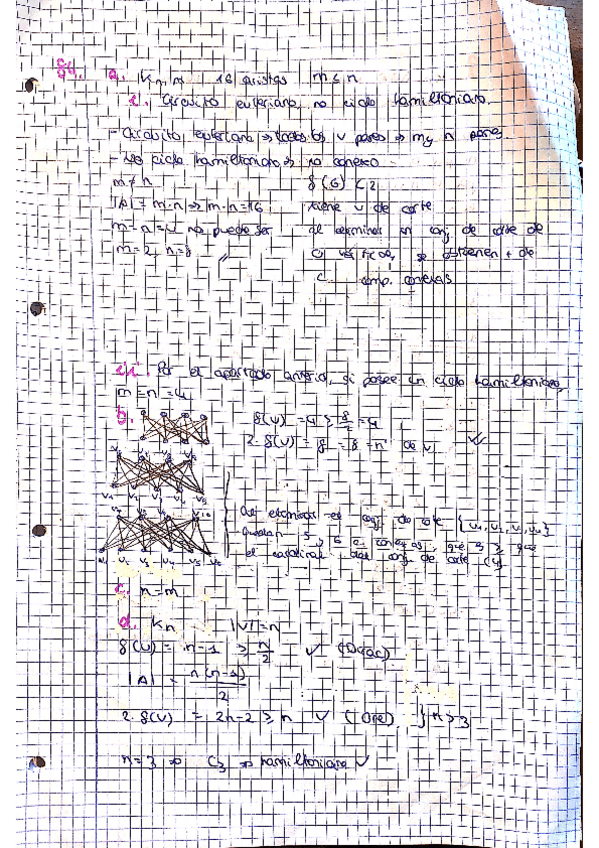 a. Km,n 16 aristas m≤n
i. Circuito euleriano, no ciclo hamiltoniano.
- Circuito euleriano ⇒ todos los v pares ⇒ m y n pares
- No ciclo hamiltoniano ⇒ no conexo
m ≠ n
δ(G) < 2
|A| = m·n ⇒ m·n = 16
tiene v de corte
m = n = 4 no puede ser
al eliminar un conj. de corte de
m = 2, n = 8 //
C vértices, se obtienen + de
C comp. conexas
ii. Por el apartado anterior, si posee un ciclo hamiltoniano,
m = n = 4
b.
δ(v) = 4 ≥ 8/2 = 4
2·δ(v) = 8 = 8 = nº de v
Al eliminar el conj. de corte {v1, v2, v3, v4}
quedan 5 y 6 c. conexas, que es > que
el cardinal del conj. de corte (4)
c. n = m
d. Kn |V| = n
δ(v) = n-1 ≥ n/2 ✓ (Dirac)
|A| = n(n-1)/2
2·δ(v) = 2n-2 ≥ n ✓ (Ore) } n > 3
n = 3 ⇒ C3 ⇒ hamiltoniano ✓